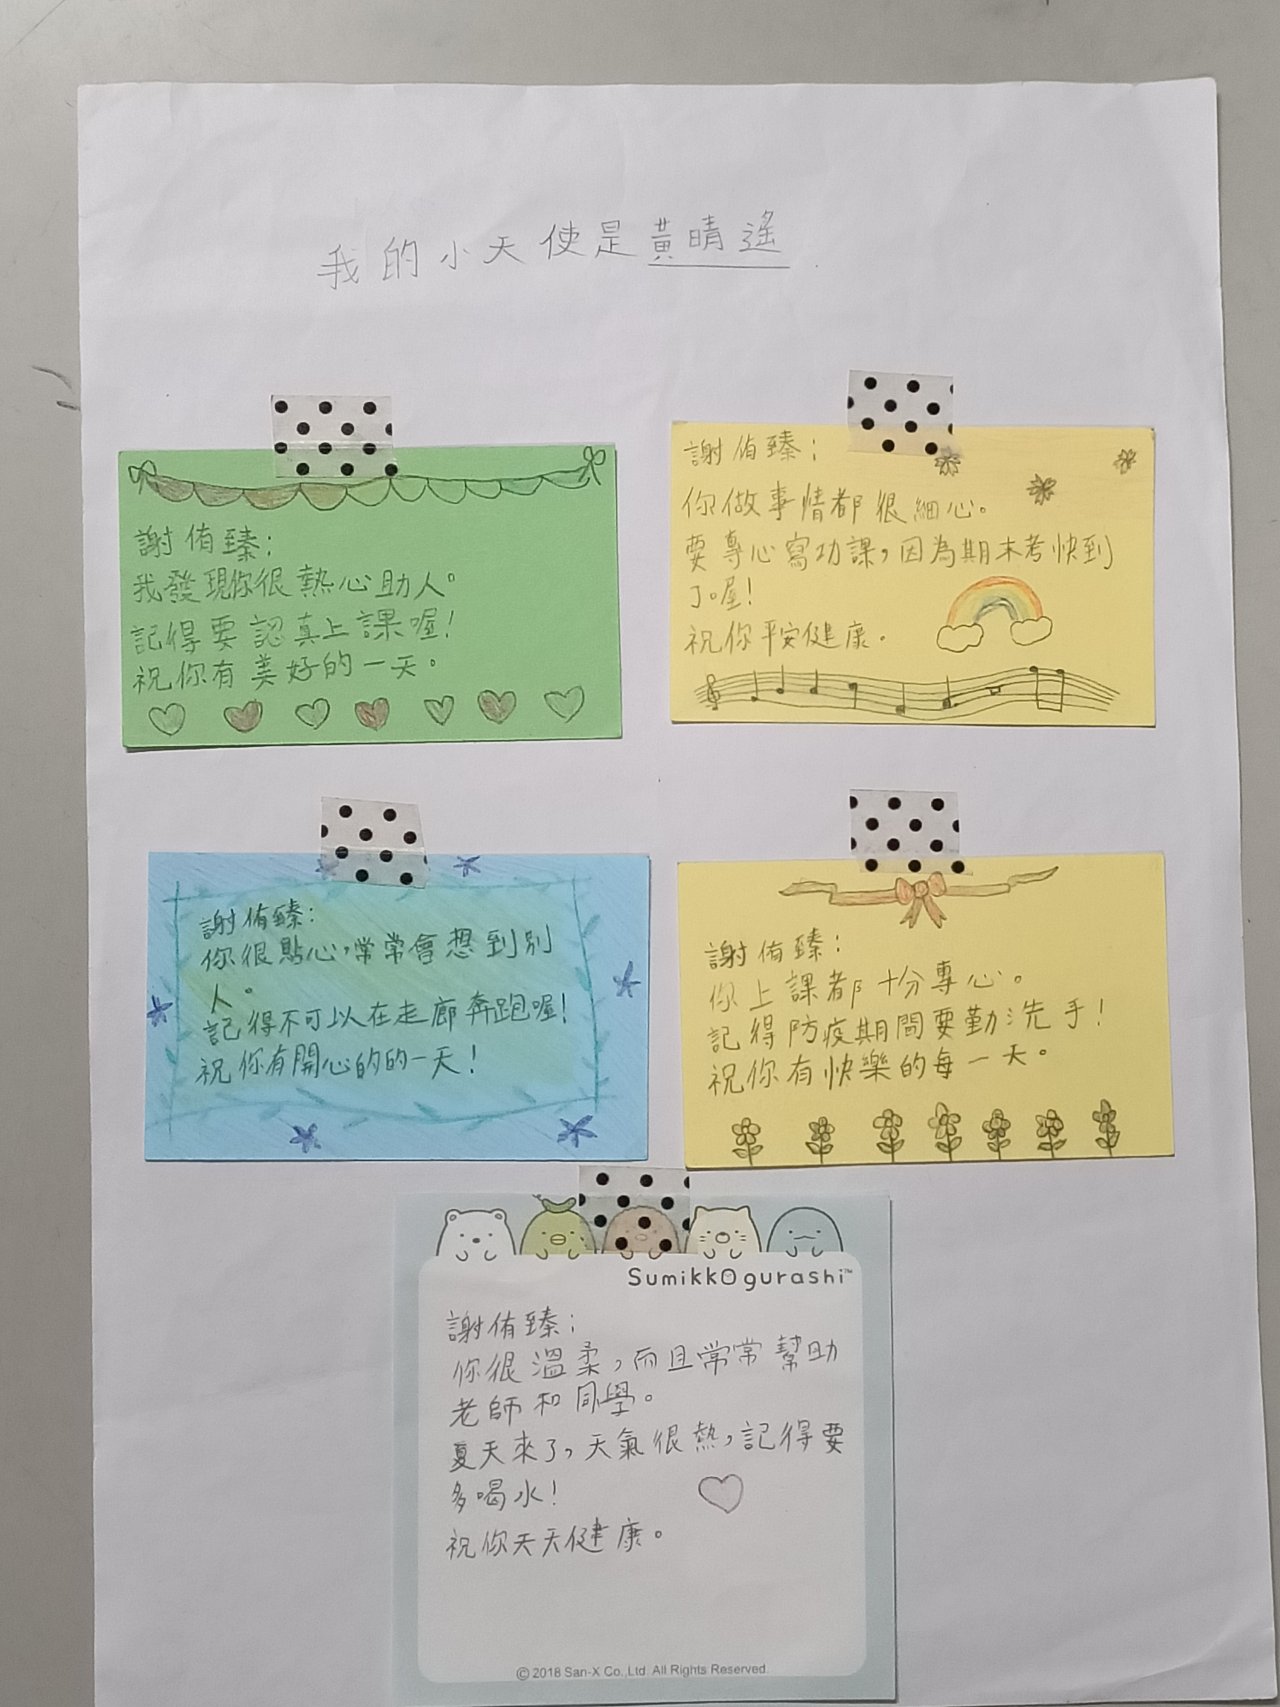 我的小天使是黃晴遙
謝侑臻:
我發現你很熱心助人。
記得要認真上課喔!
祝你有美好的一天。
謝侑臻:
你做事情都很細心。
要專心寫功課,因為期末考快到
了喔!
祝你平安健康。
謝侑臻:
你很貼心,常常會想到別
人。
記得不可以在走廊奔跑喔!
祝你有開心的的一天!
謝侑臻:
你上課都十分專心。
記得防疫期間要勤洗手!
祝你有快樂的每一天。
Sumikkogurashi™
謝侑臻:
你很溫柔,而且常常幫助
老師和同學。
夏天來了,天氣很熱,記得要
多喝水!
祝你天天健康。
© 2018 San-X Co.,Ltd. All Rights Reserved.